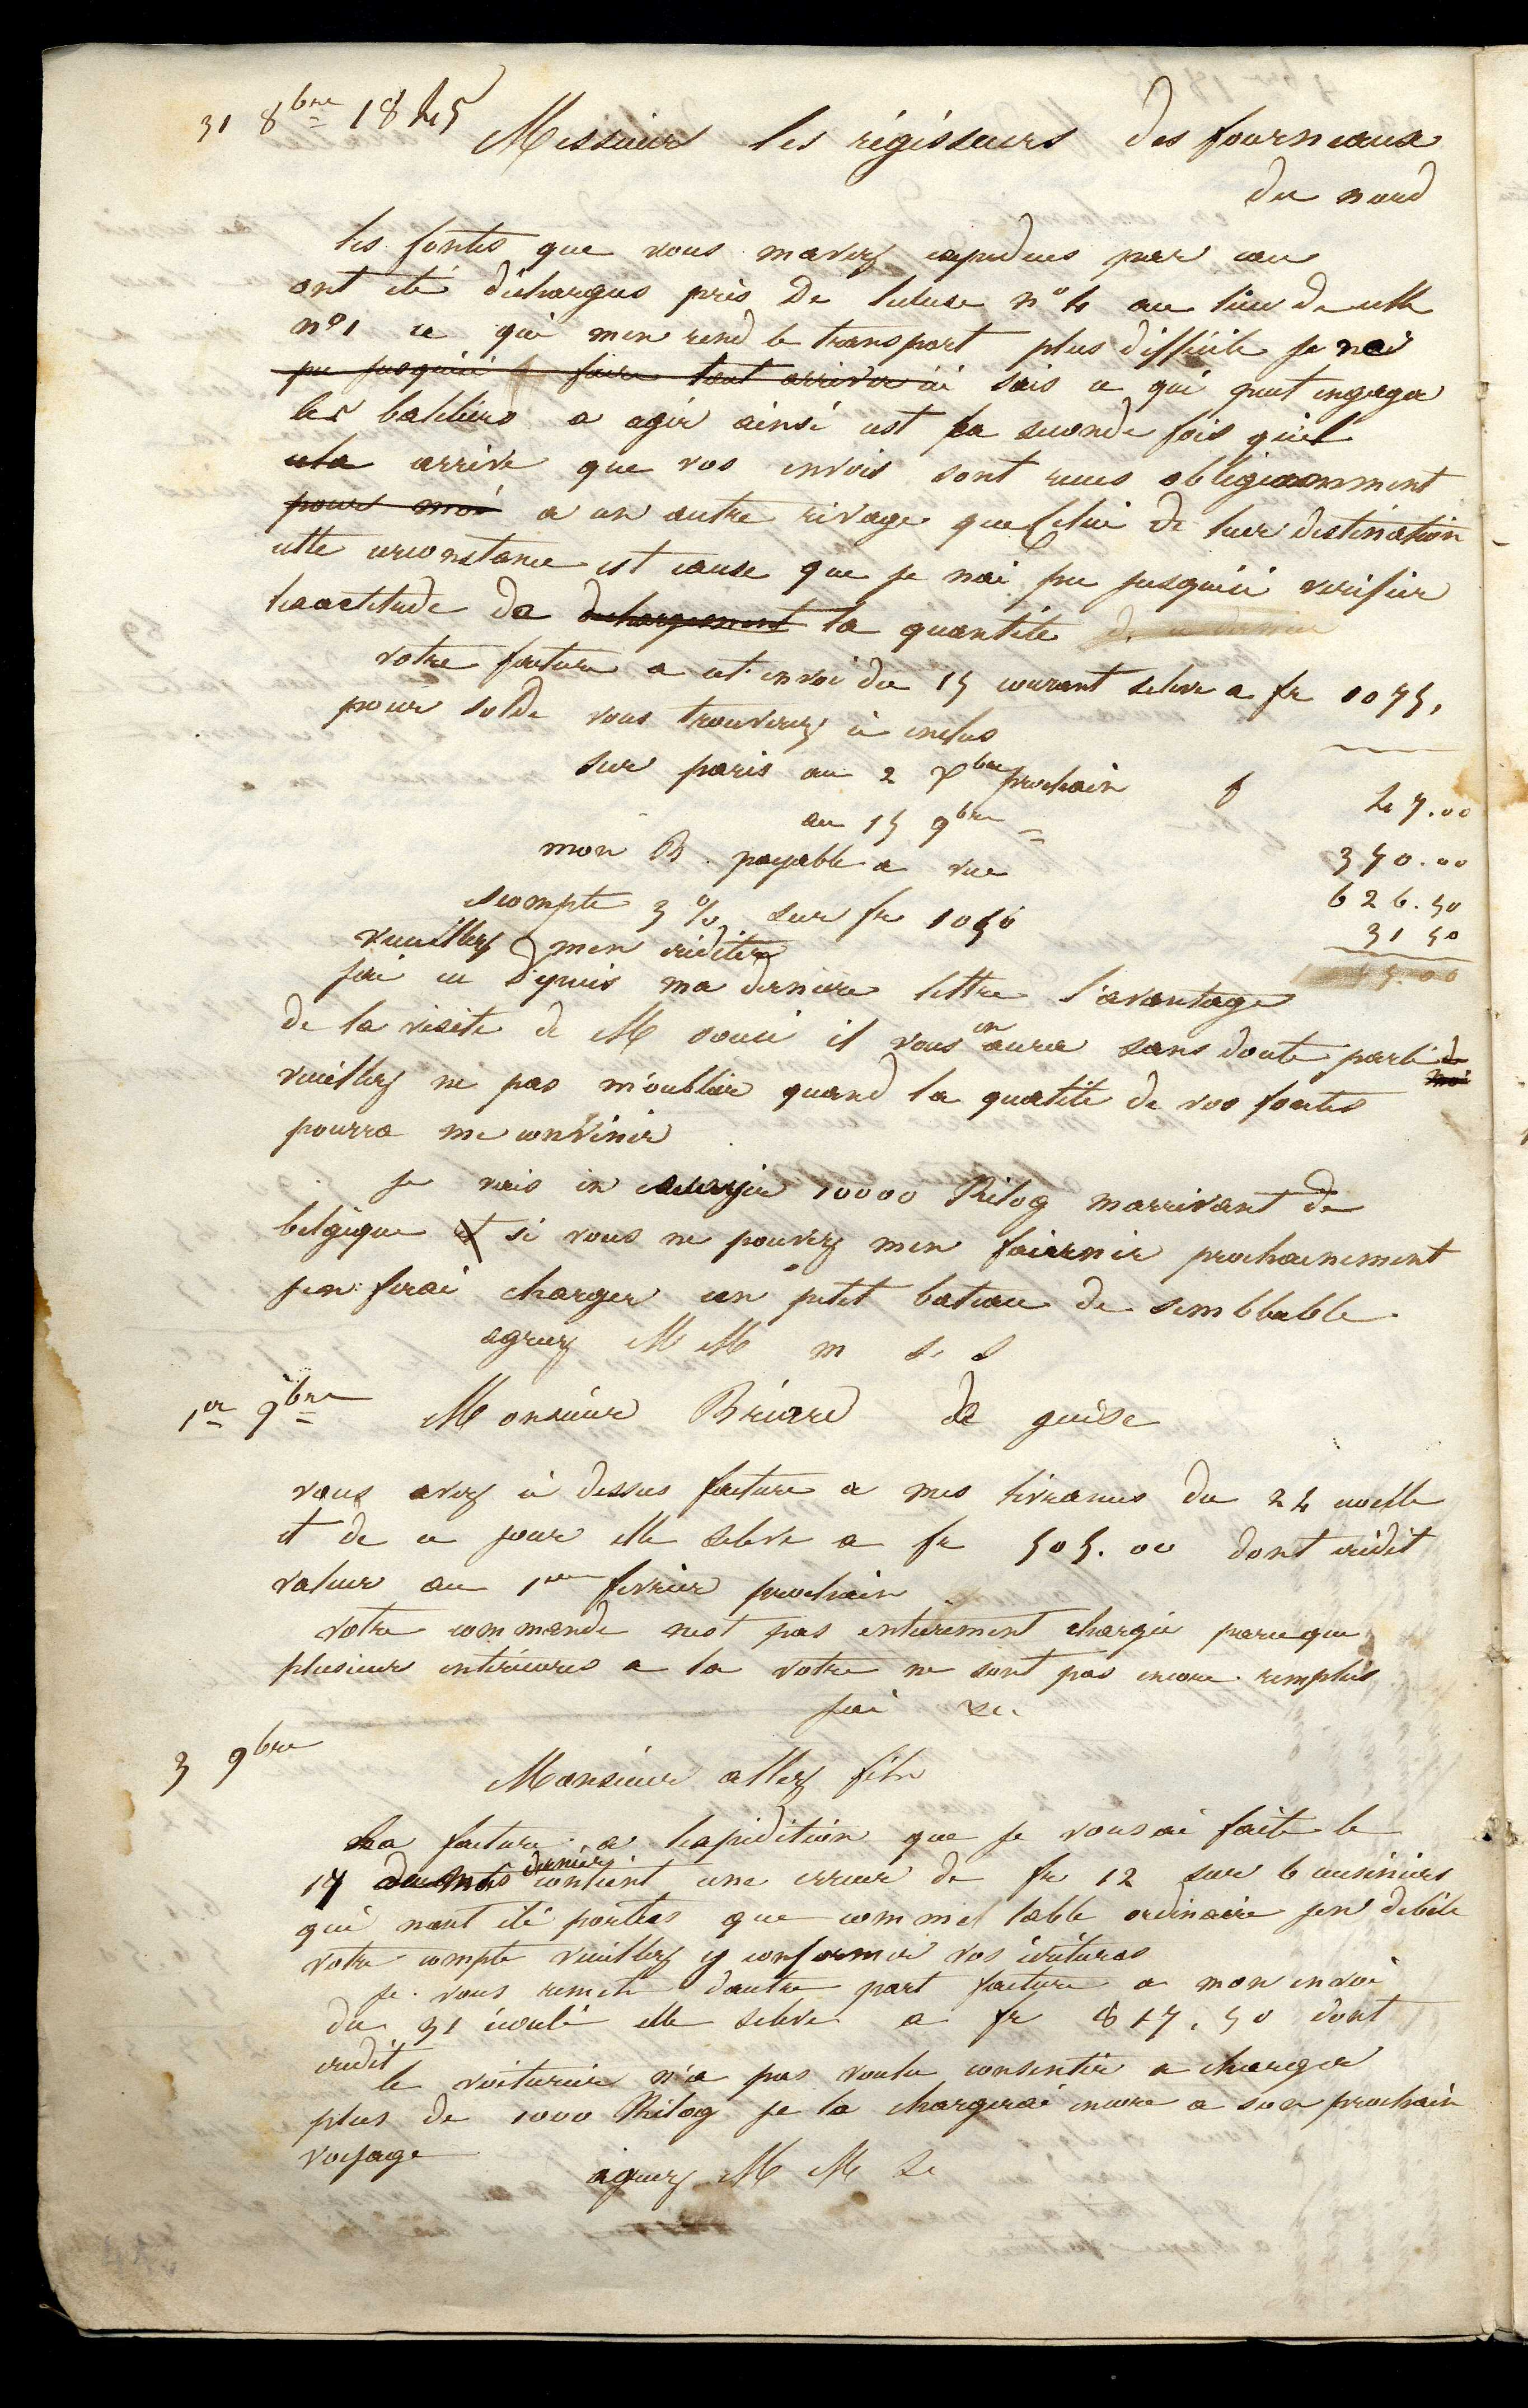 31 8bre 1845
Messieurs les régisseurs des fourneaux
du nord
les fontes que vous mavez expediees par eau
ont été déchargées près De lecluse n° 4 au lieu de celle
n° 1 ce qui men rend le transport plus difficile je ne
pu jusquici faire tout arriver ici sais ce qui peut engager
les batteliers a agir ainsi cest la seconde fois quil
cela arrive que vos envois sont recues obligeamment
pour moi a un autre rivage que Celui de leur destination
cette circonstance est cause que je nai pu jusquici verifier
lexactitude de dechargement la quantité
votre facture a cet envoi du 15 courant seleve a fr 1075,
pour solde vous trouverez ci inclus
sur paris au 2 Xbre prochain f 47.00
au 15 9bre 370.00
mon B. payable a vue 626.50
escompte 3 % sur fr 1050 31 50
veuillez men créditer
jai eu depuis ma dernière lettre l'avantage
de la visite de M il vous en aura sans doute parlé de
moi
veuillez ne pas m'oublier quand la quatité de vos fontes
pourra me convenir
je vais en 10000 Kilog marrivant de
belgique et si vous ne pouvez men fournir prochainement
jen ferai charger un petit bateau de semblable
agreez M M m s. s
1er 9bre Monsieur Briard de guise
vous avez ci dessus facture a mes livrances du 24 ecoulé
et de ce jour elle seleve a fr 505.00 dont crédit
valeur au 1er fevrier prochain
votre commande nest pas entierement chargée parceque
plusieur anterieures a la votre ne sont pas encore remplies
jai &c.
3 9bre
Monsieur allez fils
La facture a lexpédition que je vous ai faite le
17 du mois dernier contient une erreur de fr 12 sur 6 cuisinieres
qui nont été portées que comme table ordinaire jen débite
votre compte veuillez y conformer vos écritures
je vous remets dautre part facture a mon envoi
du 31 écoulé elle seleve a fr 817.50 dont
credit
le voiturier n'a pas voulu consentir a charger
plus de 1000 Kilog je la chargerai encore a son prochain
voyage
agreez M M